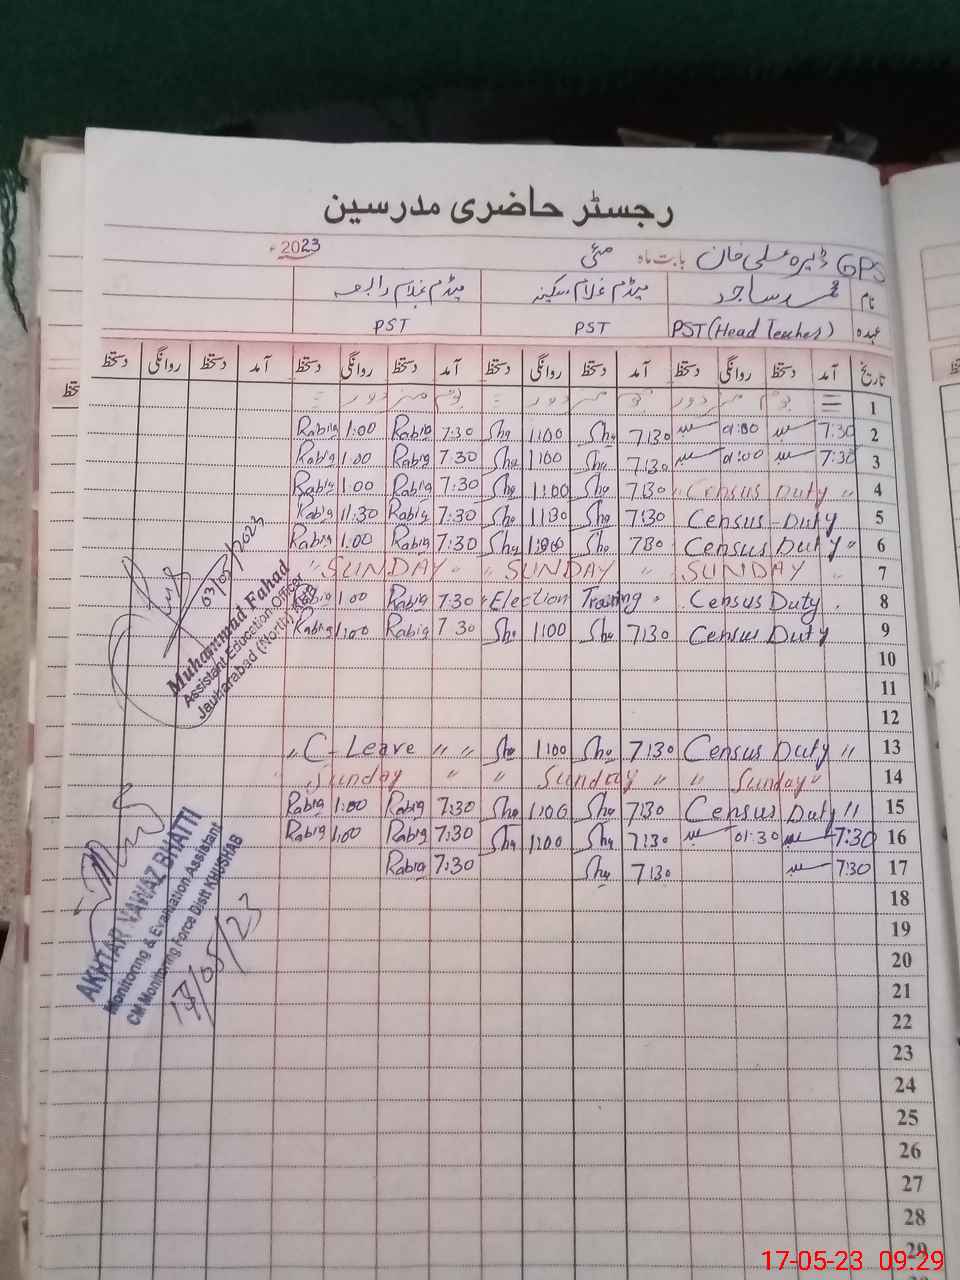 رجسٹر حاضری مدرسین
GPS ڈیرہ علی خان بابت ماہ مئی 2023ء
نام محمد ساجد میڈم غلام سکینہ میڈم غلام رابعہ
عہدہ PST (Head Teacher) PST PST
تاریخ آمد دستخط روانگی دستخط آمد دستخط روانگی دستخط آمد دستخط روانگی دستخط آمد دستخط روانگی دستخط
1 یوم مزدور یوم مزدور یوم مزدور
2 7:30 01:00 7:30 Sha 1:00 Sha 7:30 Rabia 1:00 Rabia
3 7:30 01:00 7:30 Sha 1:00 Sha 7:30 Rabia 1:00 Rabia
4 " Census Duty " 7:30 Sha 1:00 Sha 7:30 Rabia 1:00 Rabia
5 Census Duty 7:30 Sha 11:30 Sha 7:30 Rabia 11:30 Rabia
6 Census Duty " 7:30 Sha 1:00 Sha 7:30 Rabia 1:00 Rabia
7 " SUNDAY " " SUNDAY " " SUNDAY "
8 Census Duty " Election Training " 7:30 Rabia 1:00 Rabia
9 Census Duty 7:30 Sha 1:00 Sha 7:30 Rabia 1:00 Rabia
10
11
12
13 Census Duty " 7:30 Sha 1:00 Sha " C-Leave " "
14 " Sunday " " Sunday " " Sunday "
15 Census Duty " 7:30 Sha 1:00 Sha 7:30 Rabia 1:00 Rabia
16 7:30 01:30 7:30 Sha 1:00 Sha 7:30 Rabia 1:00 Rabia
17 7:30 7:30 Sha 7:30 Rabia
18
19
20
21
22
23
24
25
26
27
28
29
03/05/2023
Muhammad Fahad
Assistant Education Officer
Jauharabad (North)
AKHTAR NAWAZ BHATTI
Monitoring & Evaluation Assistant
CM Monitoring Force Distt KHUSHAB
/05/23
17-05-23 09:29